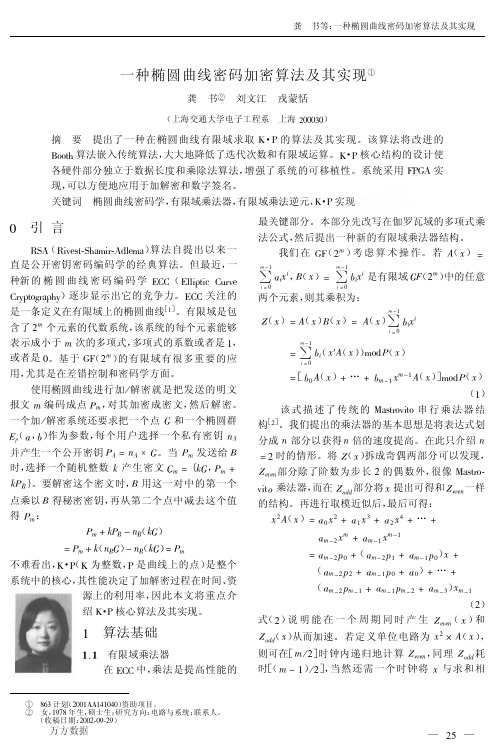 龚 书等:一种椭圆曲线密码加密算法及其实现
一种椭圆曲线密码加密算法及其实现①
龚 书② 刘文江 戎蒙恬
(上海交通大学电子工程系 上海 200030)
摘 要 提出了一种在椭圆曲线有限域求取 K·P 的算法及其实现。该算法将改进的
Booth 算法嵌入传统算法,大大地降低了迭代次数和有限域运算。K·P 核心结构的设计使
各硬件部分独立于数据长度和乘除法算法,增强了系统的可移植性。系统采用 FPGA 实
现,可以方便地应用于加解密和数字签名。
关键词 椭圆曲线密码学,有限域乘法器,有限域乘逆元,K·P 实现
0 引 言
RSA(Rivest-Shamir-Adlema)算法自提出以来一
直是公开密钥密码编码学的经典算法。但最近,一
种新的椭圆曲线密码编码学 ECC (Elliptic Curve
Cryptography)逐步显示出它的竞争力。ECC 关注的
是一条定义在有限域上的椭圆曲线[1]。有限域是包
含了 2^m 个元素的代数系统,该系统的每个元素能够
表示成小于 m 次的多项式,多项式的系数或者是 1,
或者是 0。基于 GF(2^m)的有限域有很多重要的应
用,尤其是在差错控制和密码学方面。
使用椭圆曲线进行加/解密就是把发送的明文
报文 m 编码成点 P_m,对其加密成密文,然后解密。
一个加/解密系统还要求把一个点 G 和一个椭圆群
E_p(a,b)作为参数,每个用户选择一个私有密钥 n_A
并产生一个公开密钥 P_A = n_A * G。当 P_m 发送给 B
时,选择一个随机整数 k 产生密文 C_m = {kG, P_m +
kP_B}。要解密这个密文时,B 用这一对中的第一个
点乘以 B 得秘密密钥,再从第二个点中减去这个值
得 P_m:
P_m + kP_B − n_B(kG)
= P_m + k(n_BG) − n_B(kG) = P_m
不难看出,K·P(K 为整数,P 是曲线上的点)是整个
系统中的核心,其性能决定了加解密过程在时间、资
源上的利用率,因此本文将重点介
绍 K·P 核心算法及其实现。
1 算法基础
1.1 有限域乘法器
在 ECC 中,乘法是提高性能的
最关键部分。本部分先改写在伽罗瓦域的多项式乘
法公式,然后提出一种新的有限域乘法器结构。
我们在 GF(2^m)考虑算术操作。若 A(x) =
∑_{i=0}^{m−1} a_i x^i, B(x) = ∑_{i=0}^{m−1} b_i x^i 是有限域 GF(2^m)中的任意
两个元素,则其乘积为:
Z(x) = A(x)B(x) = A(x) ∑_{i=0}^{m−1} b_i x^i
= ∑_{i=0}^{m−1} b_i(x^i A(x)) mod P(x)
= [b_0A(x) + ⋯ + b_{m−1}x^{m−1}A(x)] mod P(x)
(1)
该式描述了传统的 Mastrovito 串行乘法器结
构[2]。我们提出的乘法器的基本思想是将表达式划
分成 n 部分以获得 n 倍的速度提高。在此只介绍 n
= 2 时的情形。将 Z(x)拆成奇偶两部分可以发现,
Z_even部分除了阶数为步长 2 的偶数外,很像 Mastro-
vito 乘法器,而在 Z_odd部分将 x 提出可得和 Z_even一样
的结构。再进行取模近似后,最后可得:
x^2A(x) = a_0x^2 + a_1x^3 + a_2x^4 + ⋯ +
a_{m−2}x^m + a_{m−1}x^{m−1}
= a_{m−2}p_0 + (a_{m−2}p_1 + a_{m−1}p_0)x +
(a_{m−2}p_2 + a_{m−1}p_0 + a_0) + ⋯ +
(a_{m−2}p_{m−1} + a_{m−1}p_{m−2} + a_{m−3})x_{m−1}
(2)
式(2)说明能在一个周期同时产生 Z_even(x)和
Z_odd(x)从而加速。若定义单位电路为 x^2 × A(x),
则可在[m/2]时钟内递归地计算 Z_even,同理 Z_odd耗
时[(m − 1)/2],当然还需一个时钟将 x 与求和相
① 863 计划(2001AA141040)资助项目。
② 女,1978 年生,硕士生;研究方向:电路与系统;联系人。
(收稿日期:2002-09-29)
万方数据
— 25 —